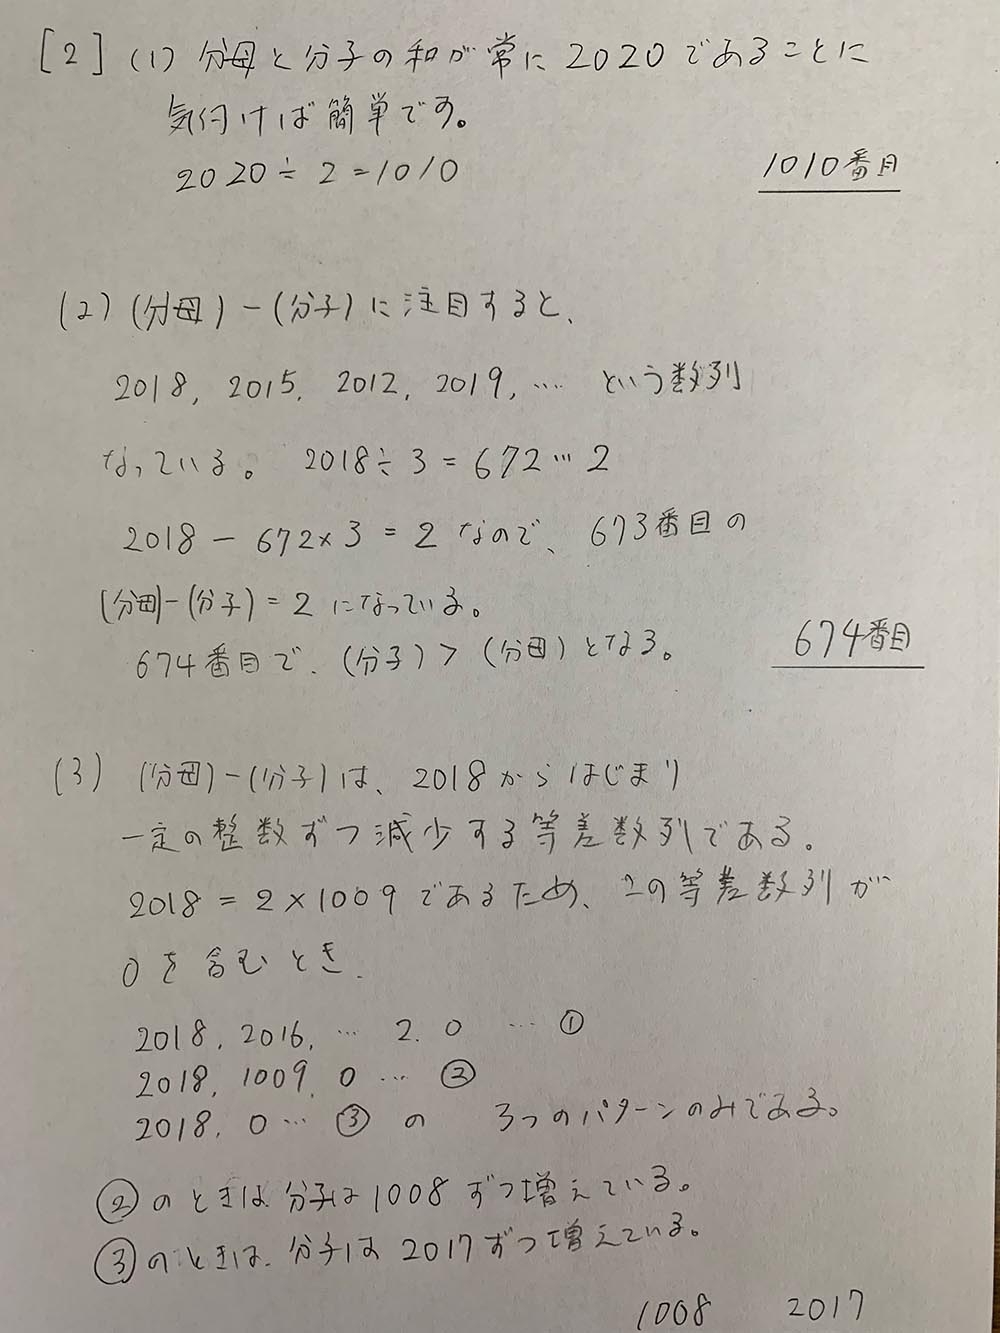 [2] (1) 分母と分子の和が常に2020であることに
気付けば簡単です。
2020÷2=1010
1010番目
(2) (分母)-(分子)に注目すると、
2018, 2015, 2012, 2019, … という数列
なっている。 2018÷3=672…2
2018-672×3=2なので、673番目の
(分母)-(分子)=2になっている。
674番目で、(分子)>(分母)となる。
674番目
(3) (分母)-(分子)は、2018からはじまり
一定の整数ずつ減少する等差数列である。
2018=2×1009であるため、この等差数列が
0を含むとき、
2018, 2016, … 2, 0 … ①
2018, 1009, 0 … ②
2018, 0 … ③ の 3つのパターンのみである。
②のときは分子は1008ずつ増えている。
③のときは、分子は2017ずつ増えている。
1008 2017